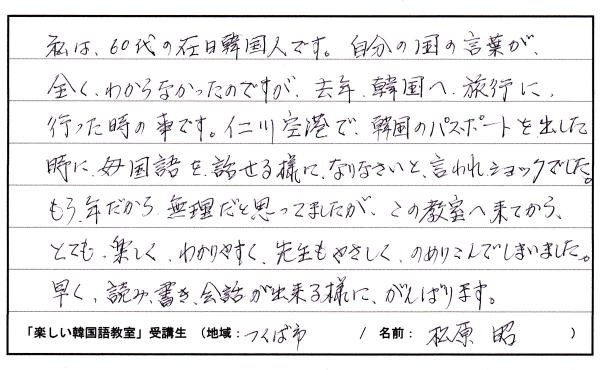 私は、60代の在日韓国人です。自分の国の言葉が、
全く、わからなかったのですが、去年、韓国へ、旅行に、
行った時の事です。仁川空港で、韓国のパスポートを出した
時に、母国語を、話せる様に、なりなさいと、言われ、ショックでした。
もう、年だから、無理だと思ってましたが、この教室へ来てから、
とても、楽しく、わかりやすく、先生もやさしく、のめりこんでしまいました。
早く、読み、書き、会話が出来る様に、がんばります。
「楽しい韓国語教室」受講生 （地域：つくば市 / 名前： 松原 昭 ）